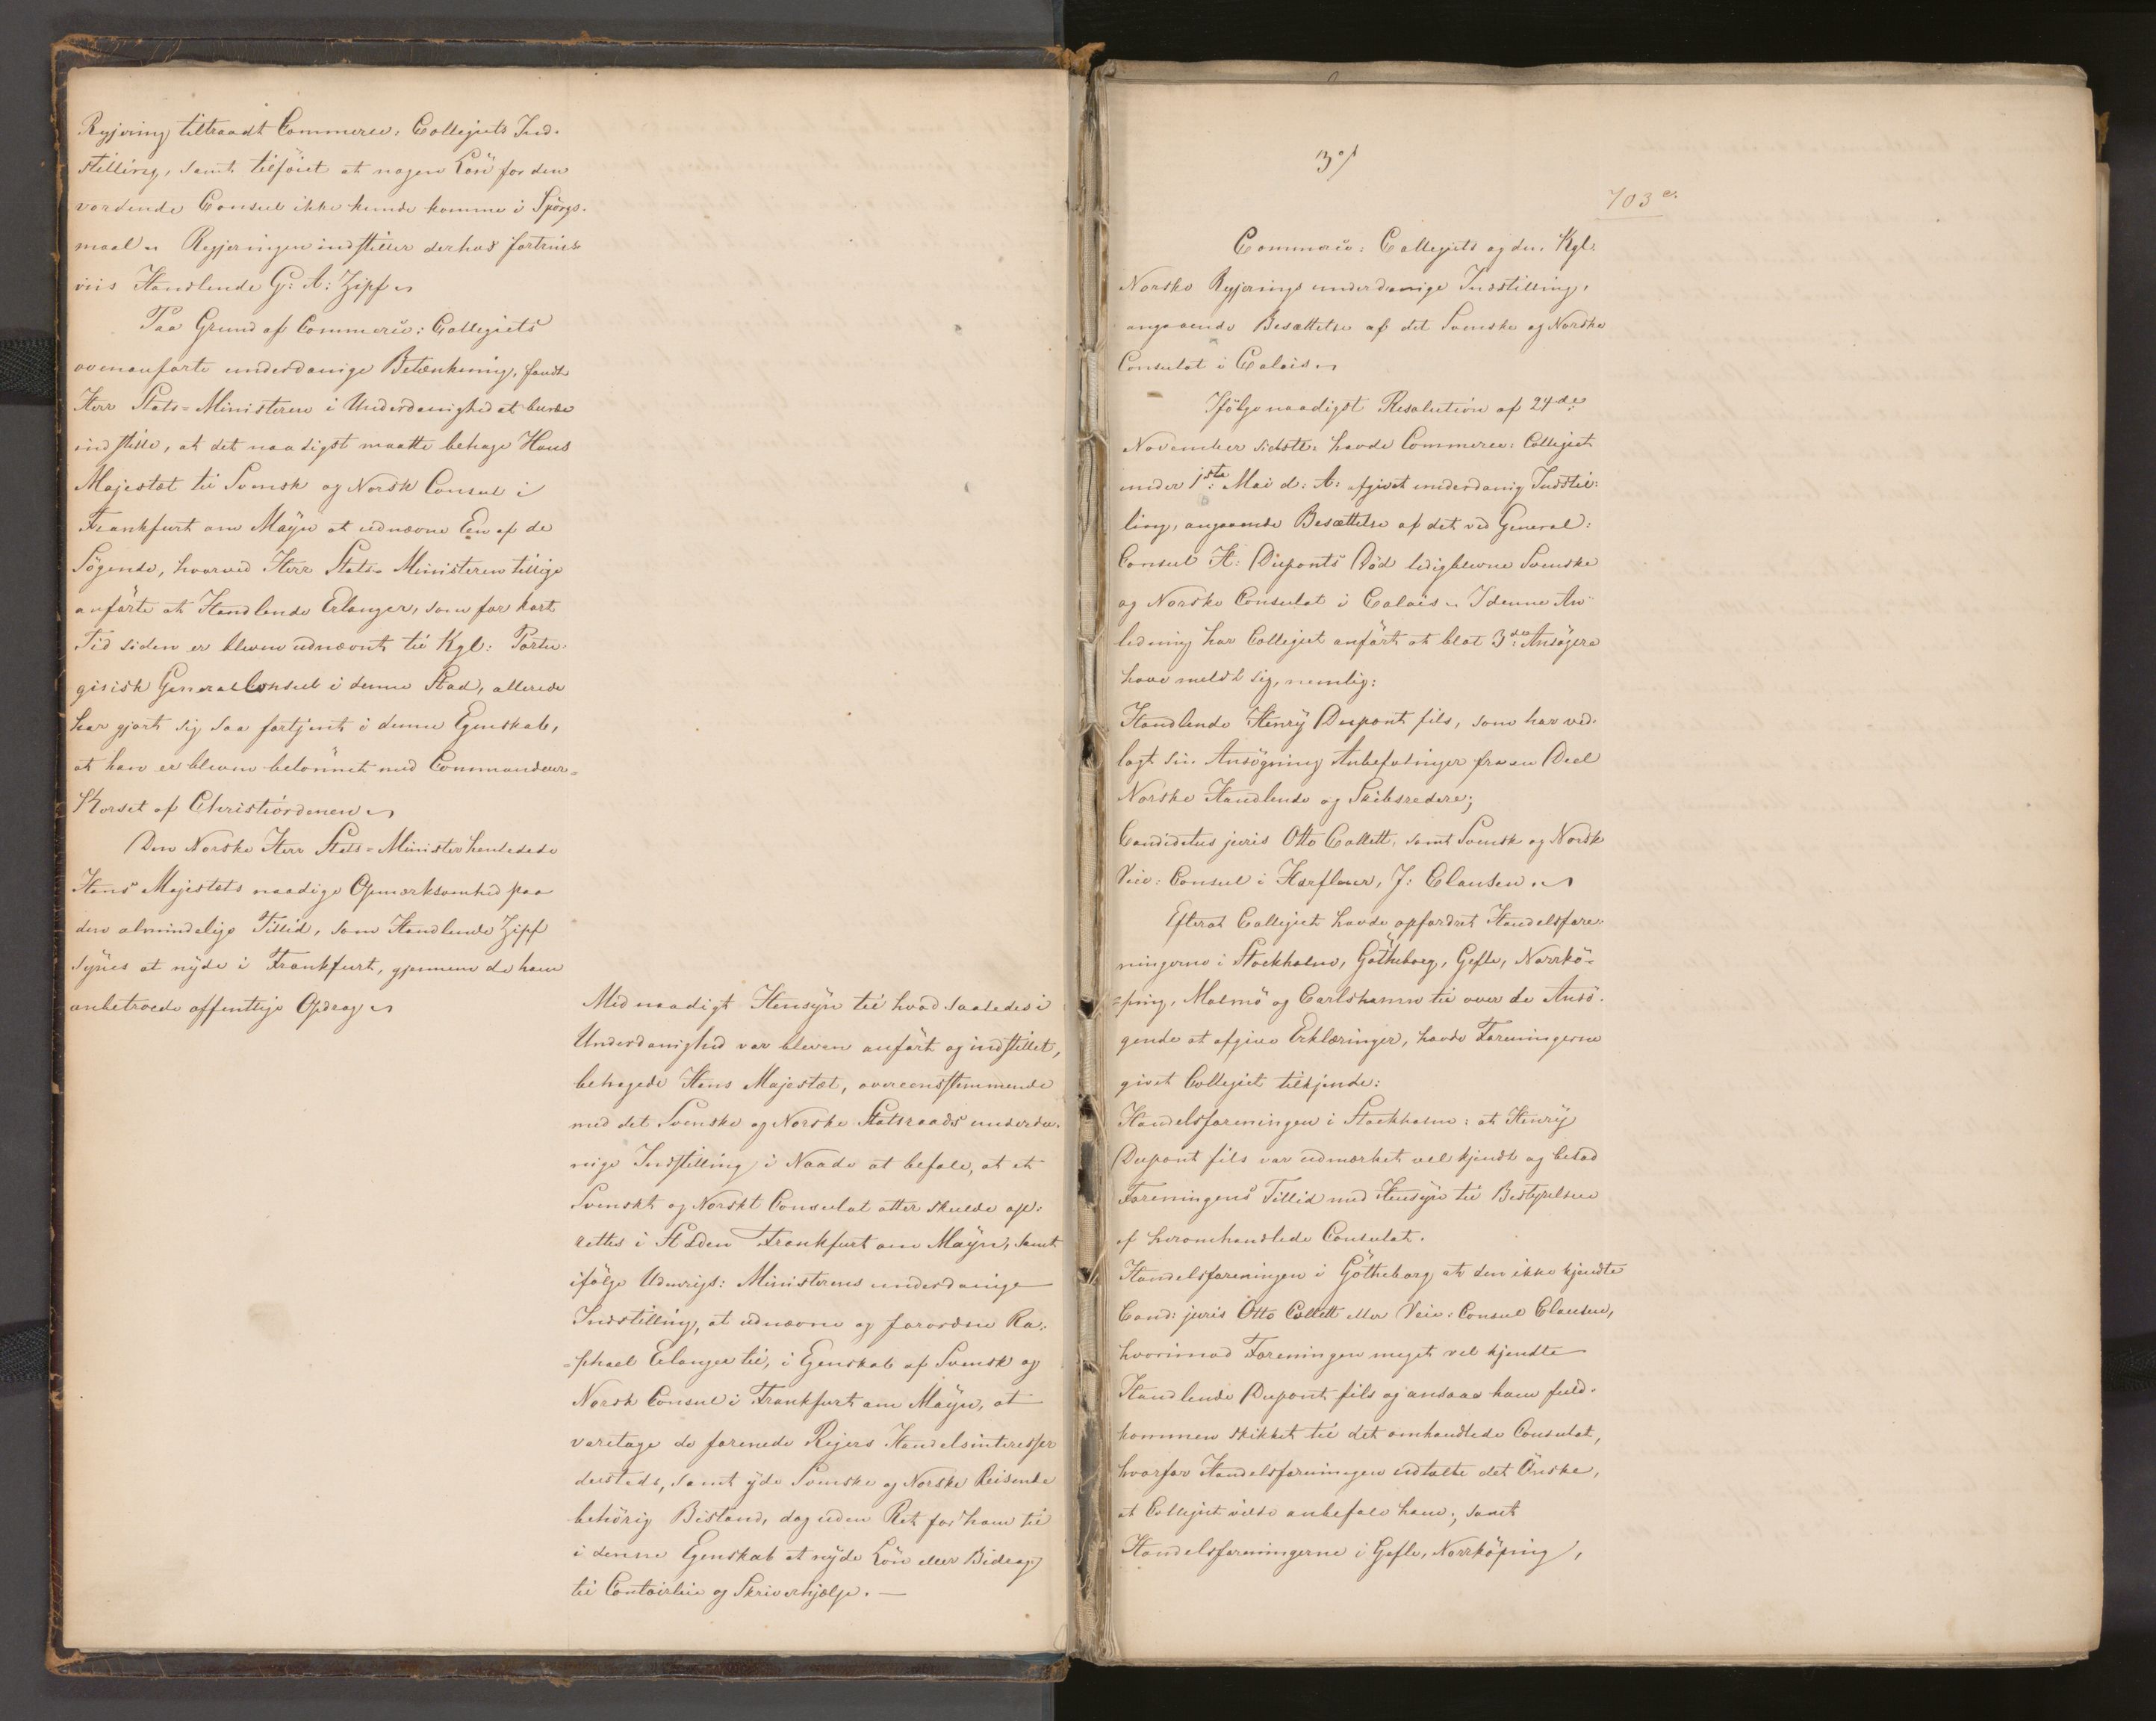 Regjering tiltraadt Commerce: Collegiets Ind-
stilling, samt tilföiet at nogen Lön for den
vordende Consul ikke kunde komme i Spörgs-
maal. Regjeringen indstiller derhos fortrins-
viis Handlende G: A: Zipf.
Paa Grund af Commerce: Collegiets
ovenanförte underdanige Betænkning, fandt
Herr Stats-Ministeren i Underdanighed at burde
indstille, at det naadigst maatte behage Hans
Majestæt til Svensk og Norsk Consul i
Frankfurt am Mayn at udnævne En af de
Sögende, hvorved Herr Stats-Ministeren tillige
anförte at Handlende Erlanger, som for kort
Tid siden er bleven udnævnt til Kgl: Portu-
gisisk General Consul i denne Stad, allerede
har gjort sig saa fortjent i denne Egenskab,
at han er bleven belönnet med Commandeur-
Korset af Christiordenen.
Den Norske Herr Stats-Minister henledede
Hans Majestæts naadige Opmærksomhed paa
den almindelige Tillid, som Handlende Zipf
synes at nyde i Frankfurt, gjennem de ham
anbetroede offentlige Opdrag.
Med naadigt Hensÿn til hvad saaledes i
Underdanighed var bleven anfört og indstillet,
behagede Hans Majestæt, overeensstemmende
med det Svenske og Norske Statsraads underda-
nige Indstilling i Naade at befale, at et
Svenskt og Norskt Consulat atter skulde op-
rettes i Staden Frankfurt am Maÿn, samt
ifölge Udenrigs: Ministerens underdanige
Indstilling, at udnævne og forordne Ra-
=phael Erlanger til, i Egenskab af Svensk og
Norsk Consul i Frankfurt am Maÿn, at
varetage de forenede Rigers Handelsinteresser
dersteds, samt ÿde Svenske og Norske Reisende
behörig Bistand, dog uden Ret for ham til
i denne Egenskab at nÿde Lön eller Bidrag
til Contoirleie og Skriverhjælp. —
3o/
703 a.
Commerce: Collegiets og den Kgl:
Norske Regjerings underdanige Indstilling,
angaaende Besættelse af det Svenske og Norske
Consulat i Calais.
Ifölge naadigst Resolution af 24de
November sidste havde Commerce: Collegiet
under 1ste Mai d: A: afgivet underdanig Indstil-
ling, angaaende Besættelse af det ved General:
Consul H: Duponts Död ledigblevne Svenske
og Norske Consulat i Calais. I denne An-
ledning har Collegiet anfört at blot 3de Ansögere
have meldt sig, nemlig:
Handlende Henrÿ Dupont fils, som har ved-
lagt sin Ansögning Anbefalinger fra en Deel
Norske Handlende og Skibsredere;
Candidatus juris Otto Collett, samt Svensk og Norsk
Vice: Consul i Harfleur, J: Clausen.
Efterat Collegiet havde opfordret Handelsfore-
ningerne i Stockholm, Götheborg, Gefle, Norrkö-
=ping, Malmö og Carlshamn til over de Ansö-
gende at afgive Erklæringer, havde Foreningerne
givet Collegiet tilkjende:
Handelsforeningen i Stockholm: at Henrÿ
Dupont fils var udmærket vel kjendt og besad
Foreningens Tillid med Hensÿn til Bestyrelsen
af heromhandlede Consulat.
Handelsforeningen i Götheborg at den ikke kjendte
Cand: juris Otto Collett eller Vice: Consul Clausen,
hvorimod Foreningen meget vel kjendte
Handlende Dupont fils og ansaae ham fuld-
kommen skikket til det omhandlede Consulat,
hvorfor Handelsforeningen udtalte det Önske,
at Collegiet vilde anbefale ham; samt
Handelsforeningerne i Gefle, Norrköping,